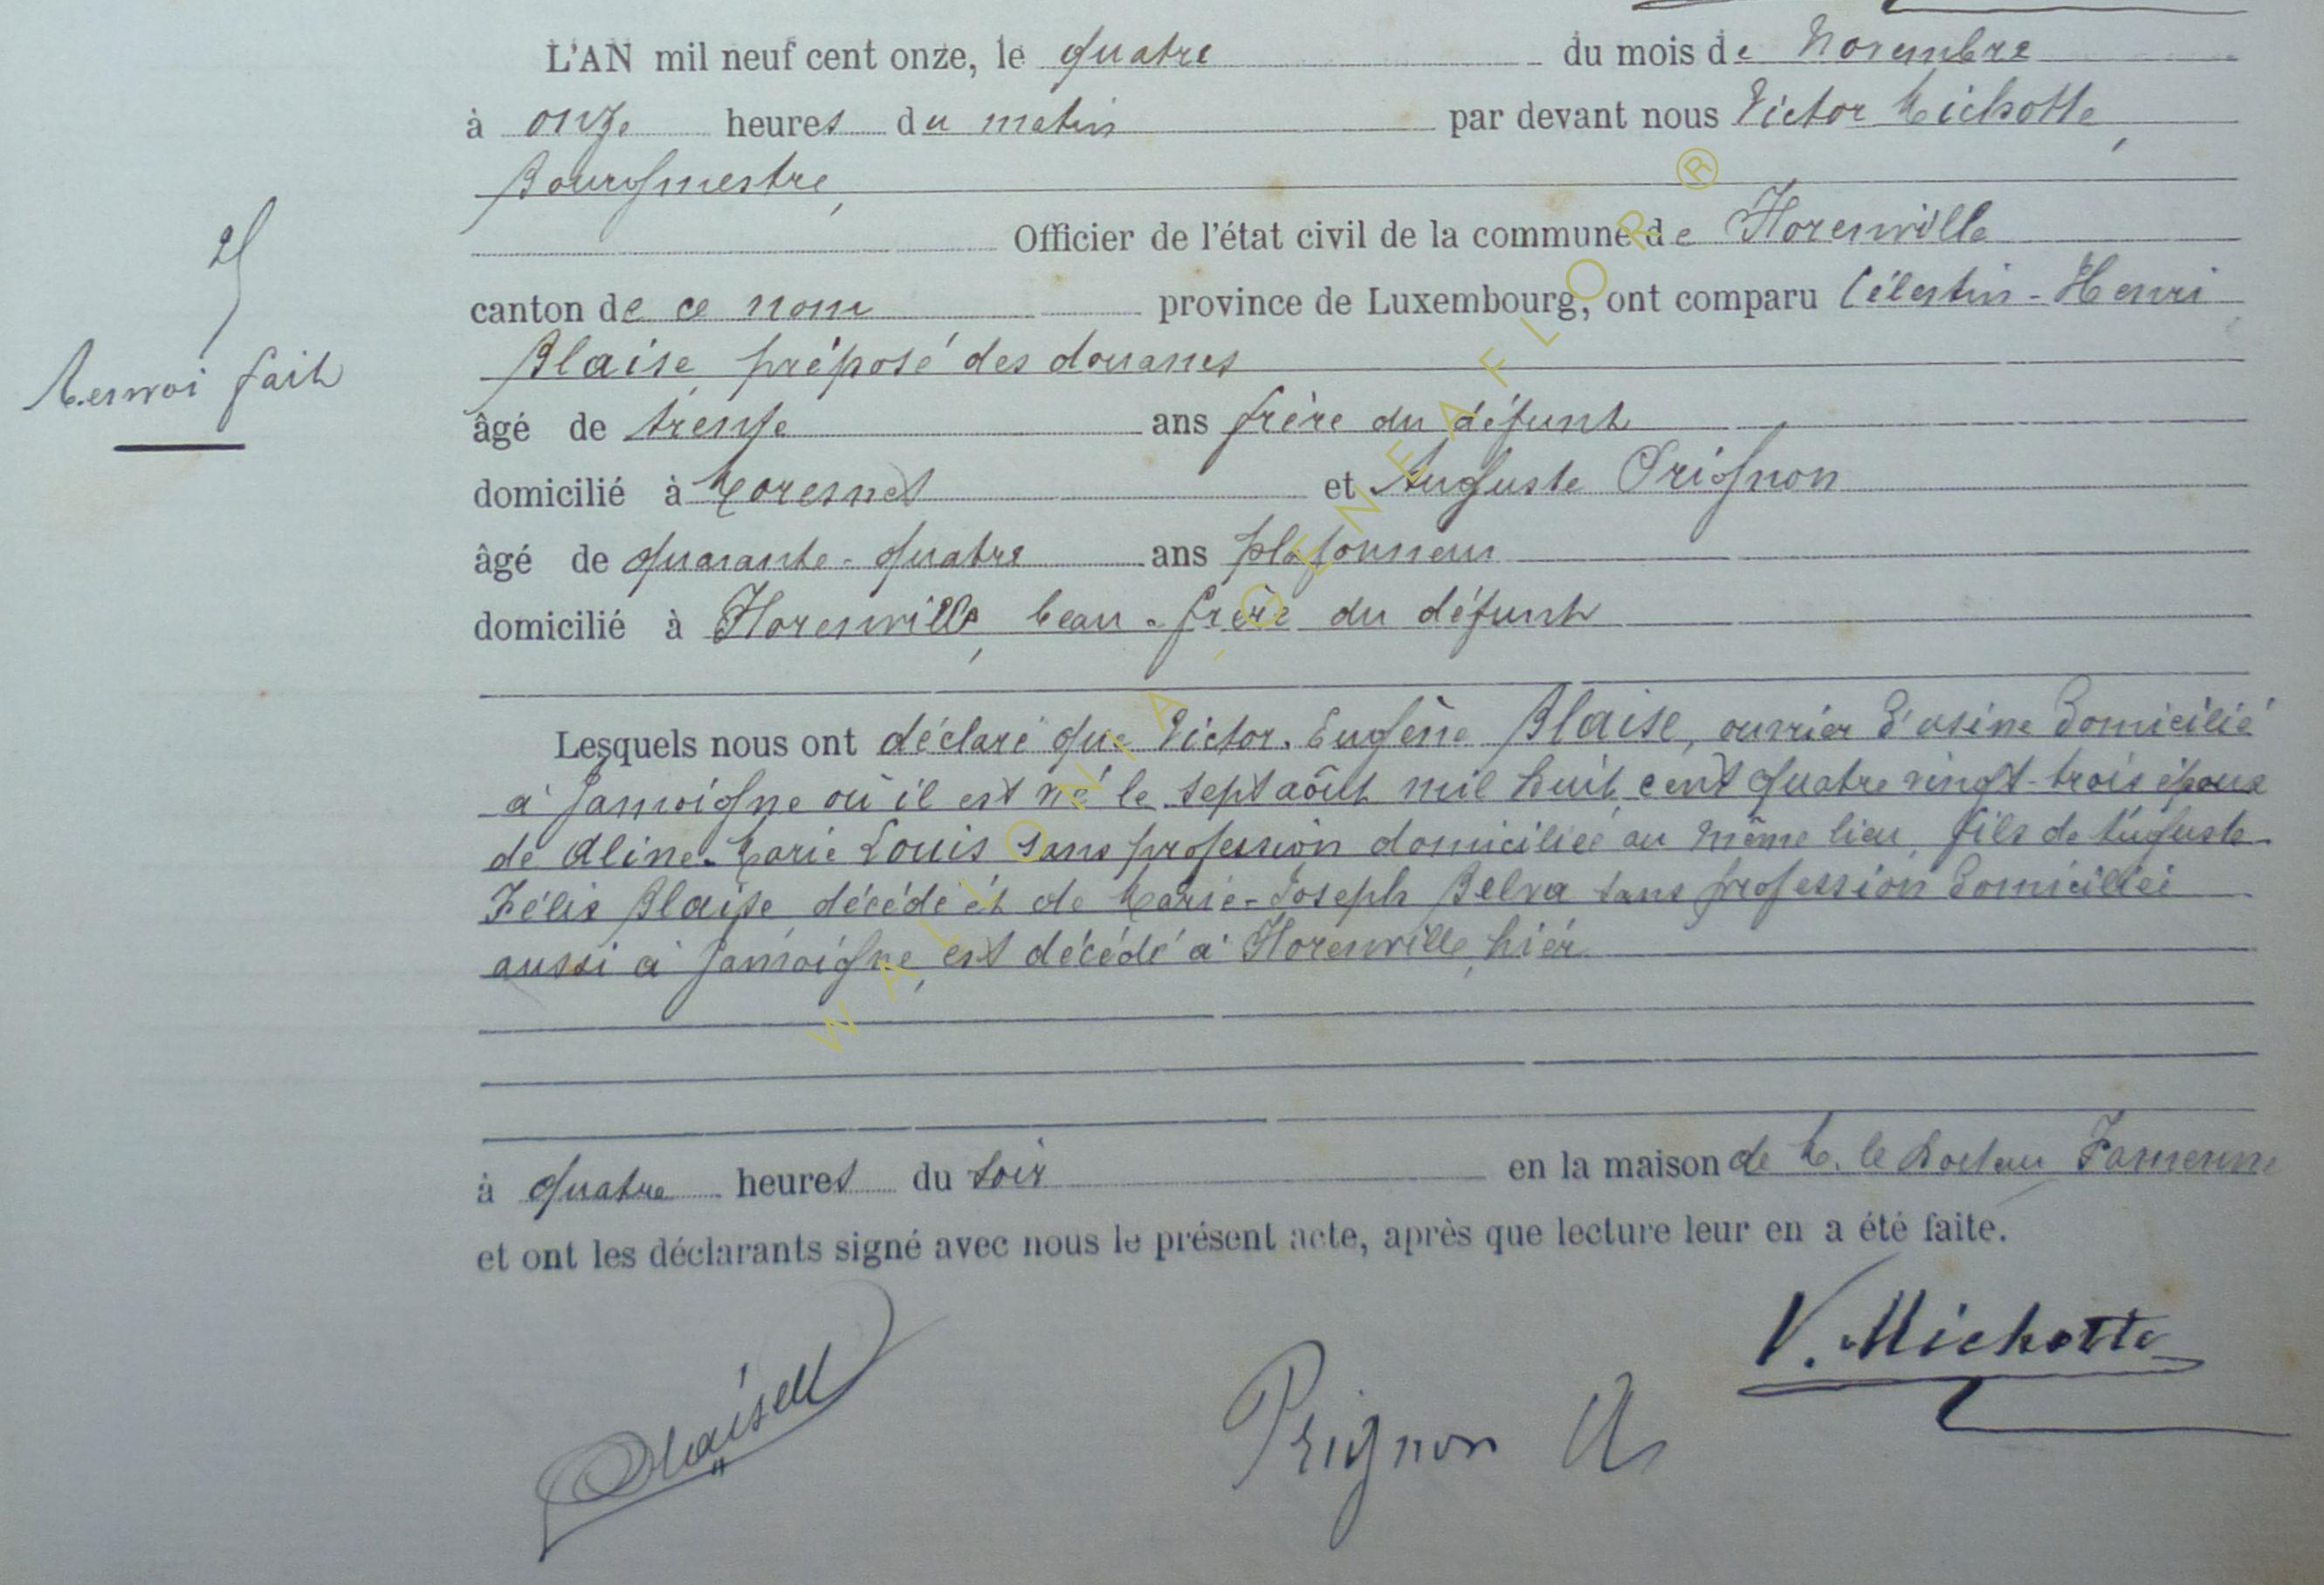 L'AN mil neuf cent onze, le quatre du mois de Novembre
à onze heures du matin par devant nous Victor Michotte,
Bourgmestre,
25
Officier de l'état civil de la commune de Florenville
canton de ce nom province de Luxembourg, ont comparu Célestin-Henri
Blaise, préposé des douanes
Renvoi fait
âgé de trente ans frère du défunt
domicilié à Moresnet et Auguste Prignon
âgé de quarante-quatre ans plafonneur
domicilié à Florenville, beau-frère du défunt
Lesquels nous ont déclaré que Victor-Eugène Blaise, ouvrier d'usine domicilié
à Jamoigne où il est né le sept août mil huit cent quatre vingt-trois époux
de Aline-Marie Louis sans profession domiciliée au même lieu, fils de Auguste
Félix Blaise, décédé et de Marie-Joseph Belva sans profession domiciliée
aussi à Jamoigne, est décédé à Florenville, hier
à quatre heures du soir en la maison de M. le Docteur Famenne
et ont les déclarants signé avec nous le présent acte, après que lecture leur en a été faite.
V. Michotte
Prignon A
WALLONIA - GENEAFLOR ®